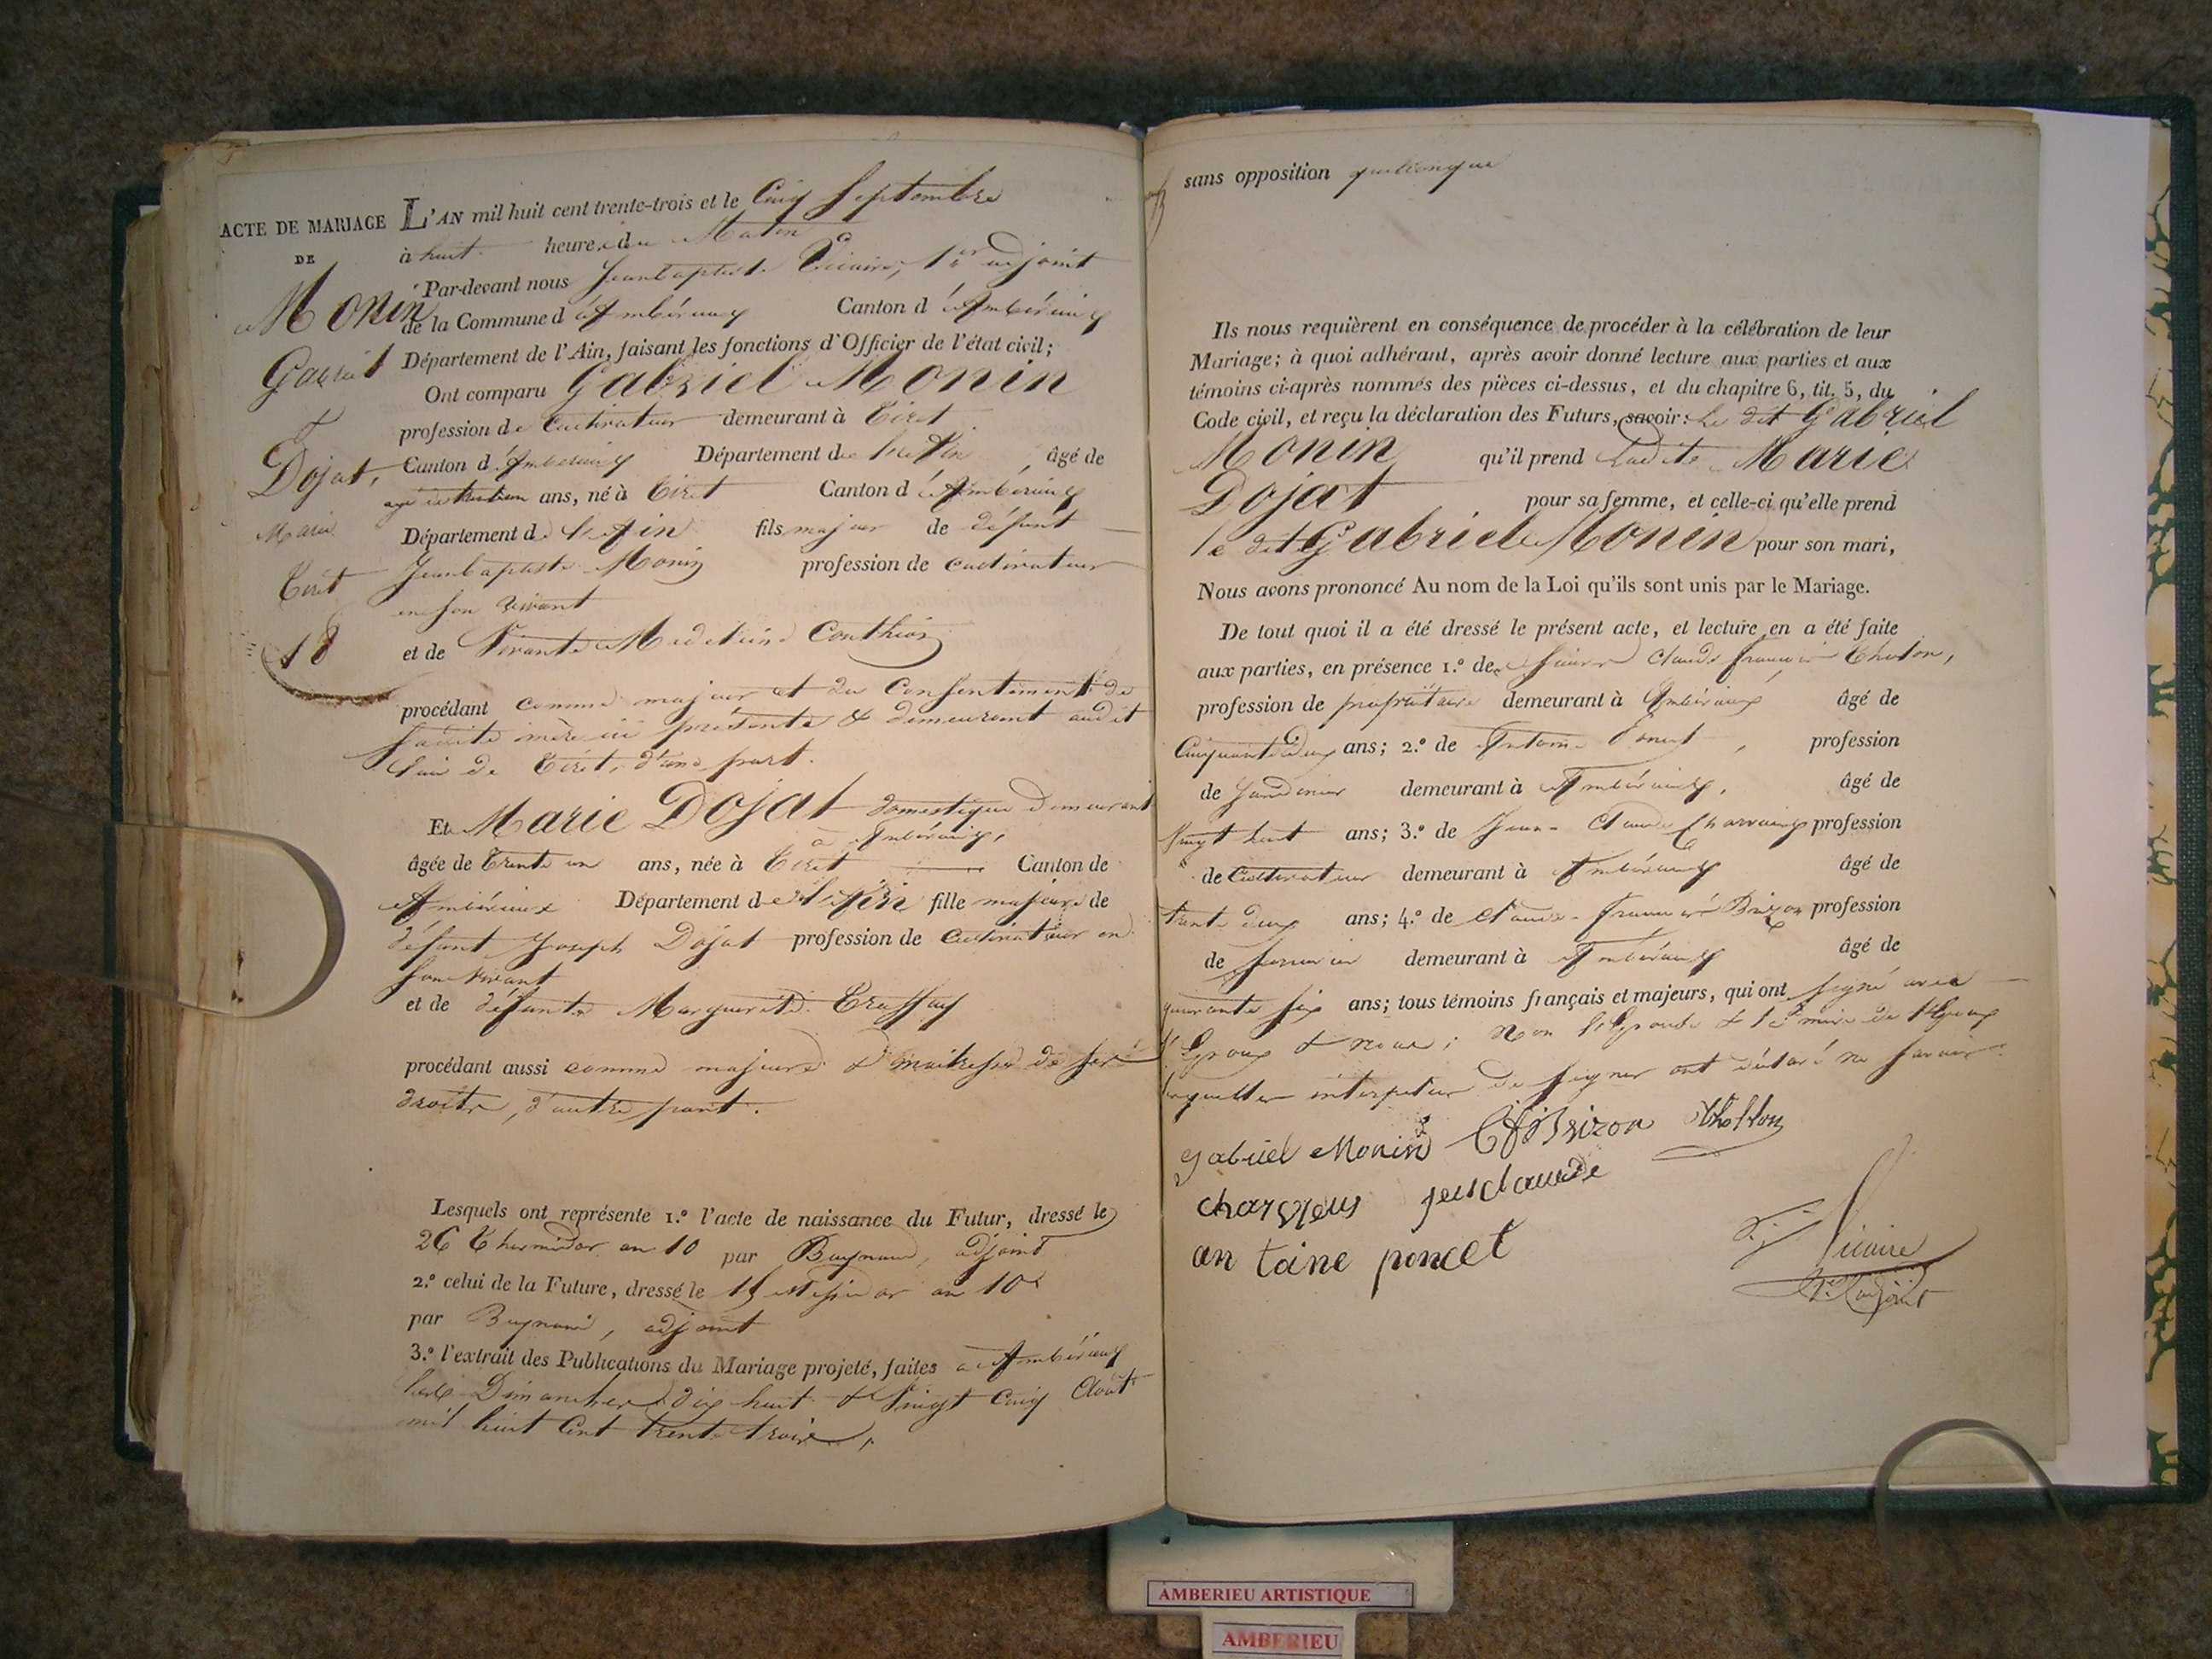 ACTE DE MARIAGE
DE
Monin
Gabriel
et
Dojat,
Marie
Tiret
18
L'AN mil huit cent trente-trois et le Cinq Septembre
à huit heures du Matin
Par-devant nous Jean baptiste Vicaire, 1er adjoint
de la Commune d'Ambérieux Canton d'Ambérieux
Département de l'Ain, faisant les fonctions d'Officier de l'état civil;
Ont comparu Gabriel Monin
profession de Cultivateur demeurant à Tiret
Canton d'Amberieux Département de l'Ain âgé de
ans, né à Tiret Canton d'Ambérieux
Département de l'Ain fils majeur de défunt
Jean baptiste Monin profession de cultivateur
en son vivant
et de Vivante Madeleine Couthion
procédant comme majeur et du Consentement de
sadite mère ici présente & demeurant audit
lieu de Tiret, d'une part.
Et Marie Dojat domestique demeurant
à Ambérieux,
âgée de Trente un ans, née à Tiret Canton de
Ambérieux Département de l'Ain fille majeure de
défunt Joseph Dojat profession de Cultivateur en
son vivant
et de défunte Marguerite
procédant aussi comme majeure & maitresse de ses
droits, d'autre part.
Lesquels ont représente 1.º l'acte de naissance du Futur, dressé le
26 Thermidor an 10 par Buynand, adjoint
2.º celui de la Future, dressé le 15 Messidor an 10
par Buynand, adjoint
3.º l'extrait des Publications du Mariage projeté, faites à Ambérieux
les Dimanches dix huit & Vingt Cinq Août
mil huit Cent trente trois,
sans opposition quelconque
Ils nous requièrent en conséquence de procéder à la célébration de leur
Mariage; à quoi adhérant, après avoir donné lecture aux parties et aux
témoins ci-après nommés des pièces ci-dessus, et du chapitre 6, tit. 5, du
Code civil, et reçu la déclaration des Futurs, savoir: Le dit Gabriel
Monin qu'il prend Ladite Marie
Dojat pour sa femme, et celle-ci qu'elle prend
le dit Gabriel Monin pour son mari,
Nous avons prononcé Au nom de la Loi qu'ils sont unis par le Mariage.
De tout quoi il a été dressé le présent acte, et lecture en a été faite
aux parties, en présence 1.º de Claude françois Tholon,
profession de propriétaire demeurant à Ambérieux âgé de
Cinquante deux ans; 2.º de Antoine Poncet, profession
de Jardinier demeurant à Ambérieux, âgé de
Vingt huit ans; 3.º de Jean Claude Charvieux profession
de Cultivateur demeurant à Ambérieux âgé de
trente deux ans; 4.º de Claude françois Brizon profession
de demeurant à Ambérieux âgé de
quarante six ans; tous témoins français et majeurs, qui ont signé avec
l'Epoux & nous; non l'Epouse & la mère de l'Epoux
lesquelles interpelées de signer ont déclaré ne savoir.
gabriel Monin CfBrizon tholon
charvieus jenclaude
an taine poncet
Vicaire
adjoint
AMBERIEU ARTISTIQUE
AMBERIEU